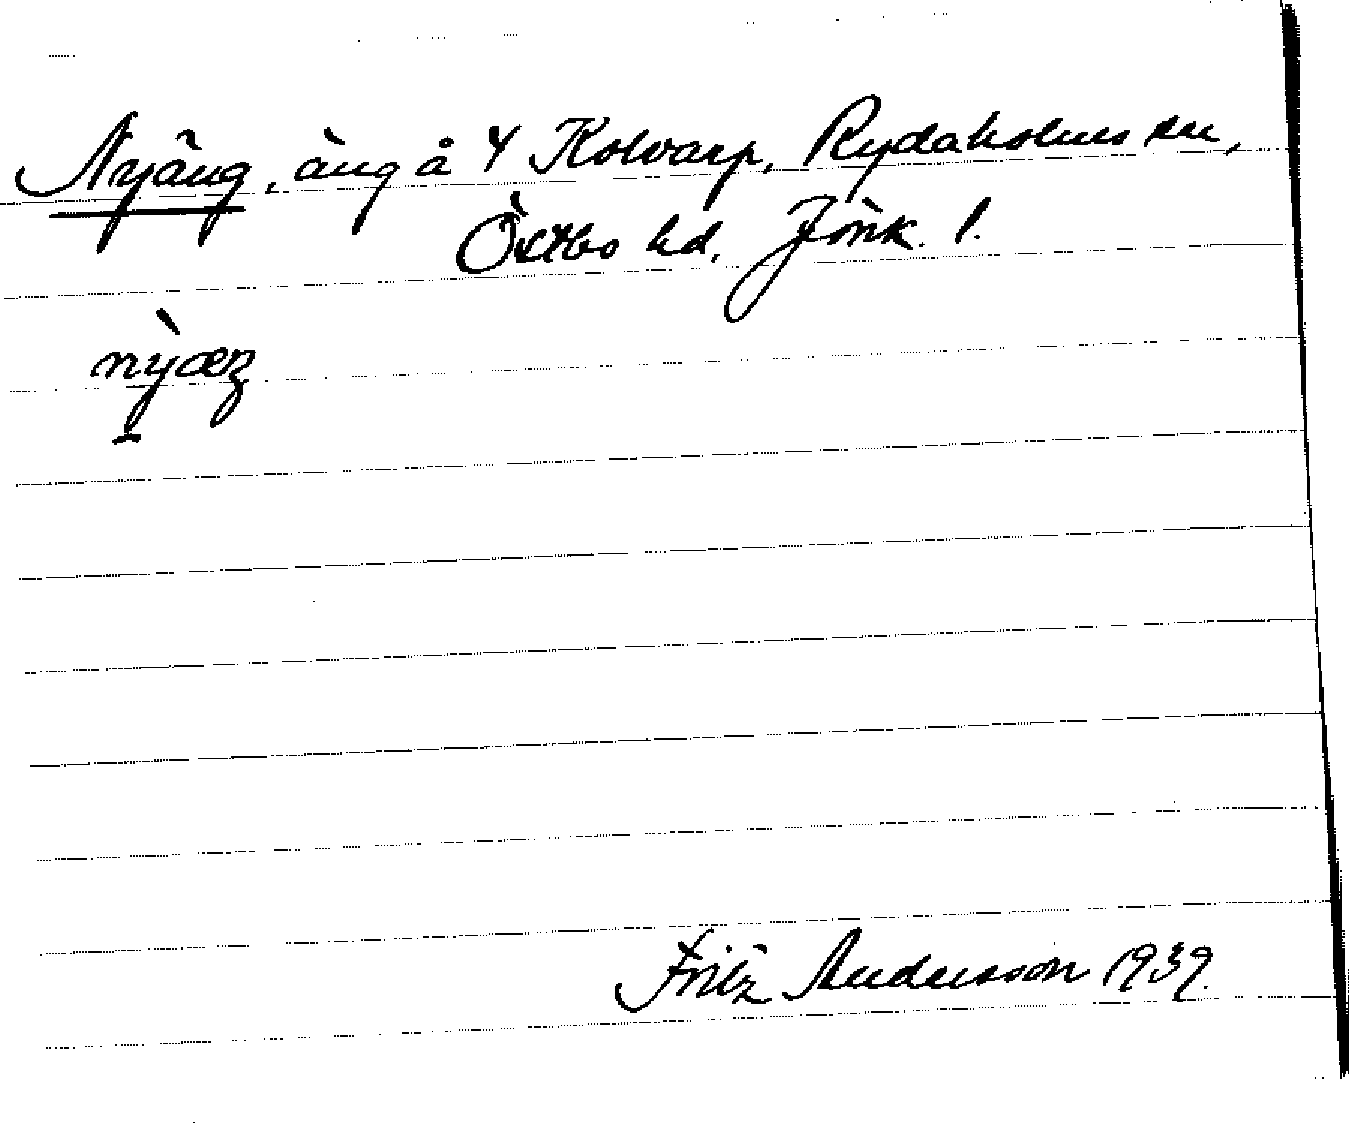 Nyäng, äng å 4 Kolvarp, Rydaholms sn,
Östbo hd. Jönk. l.
nỳæŋ
Fritz Andersson 1939.